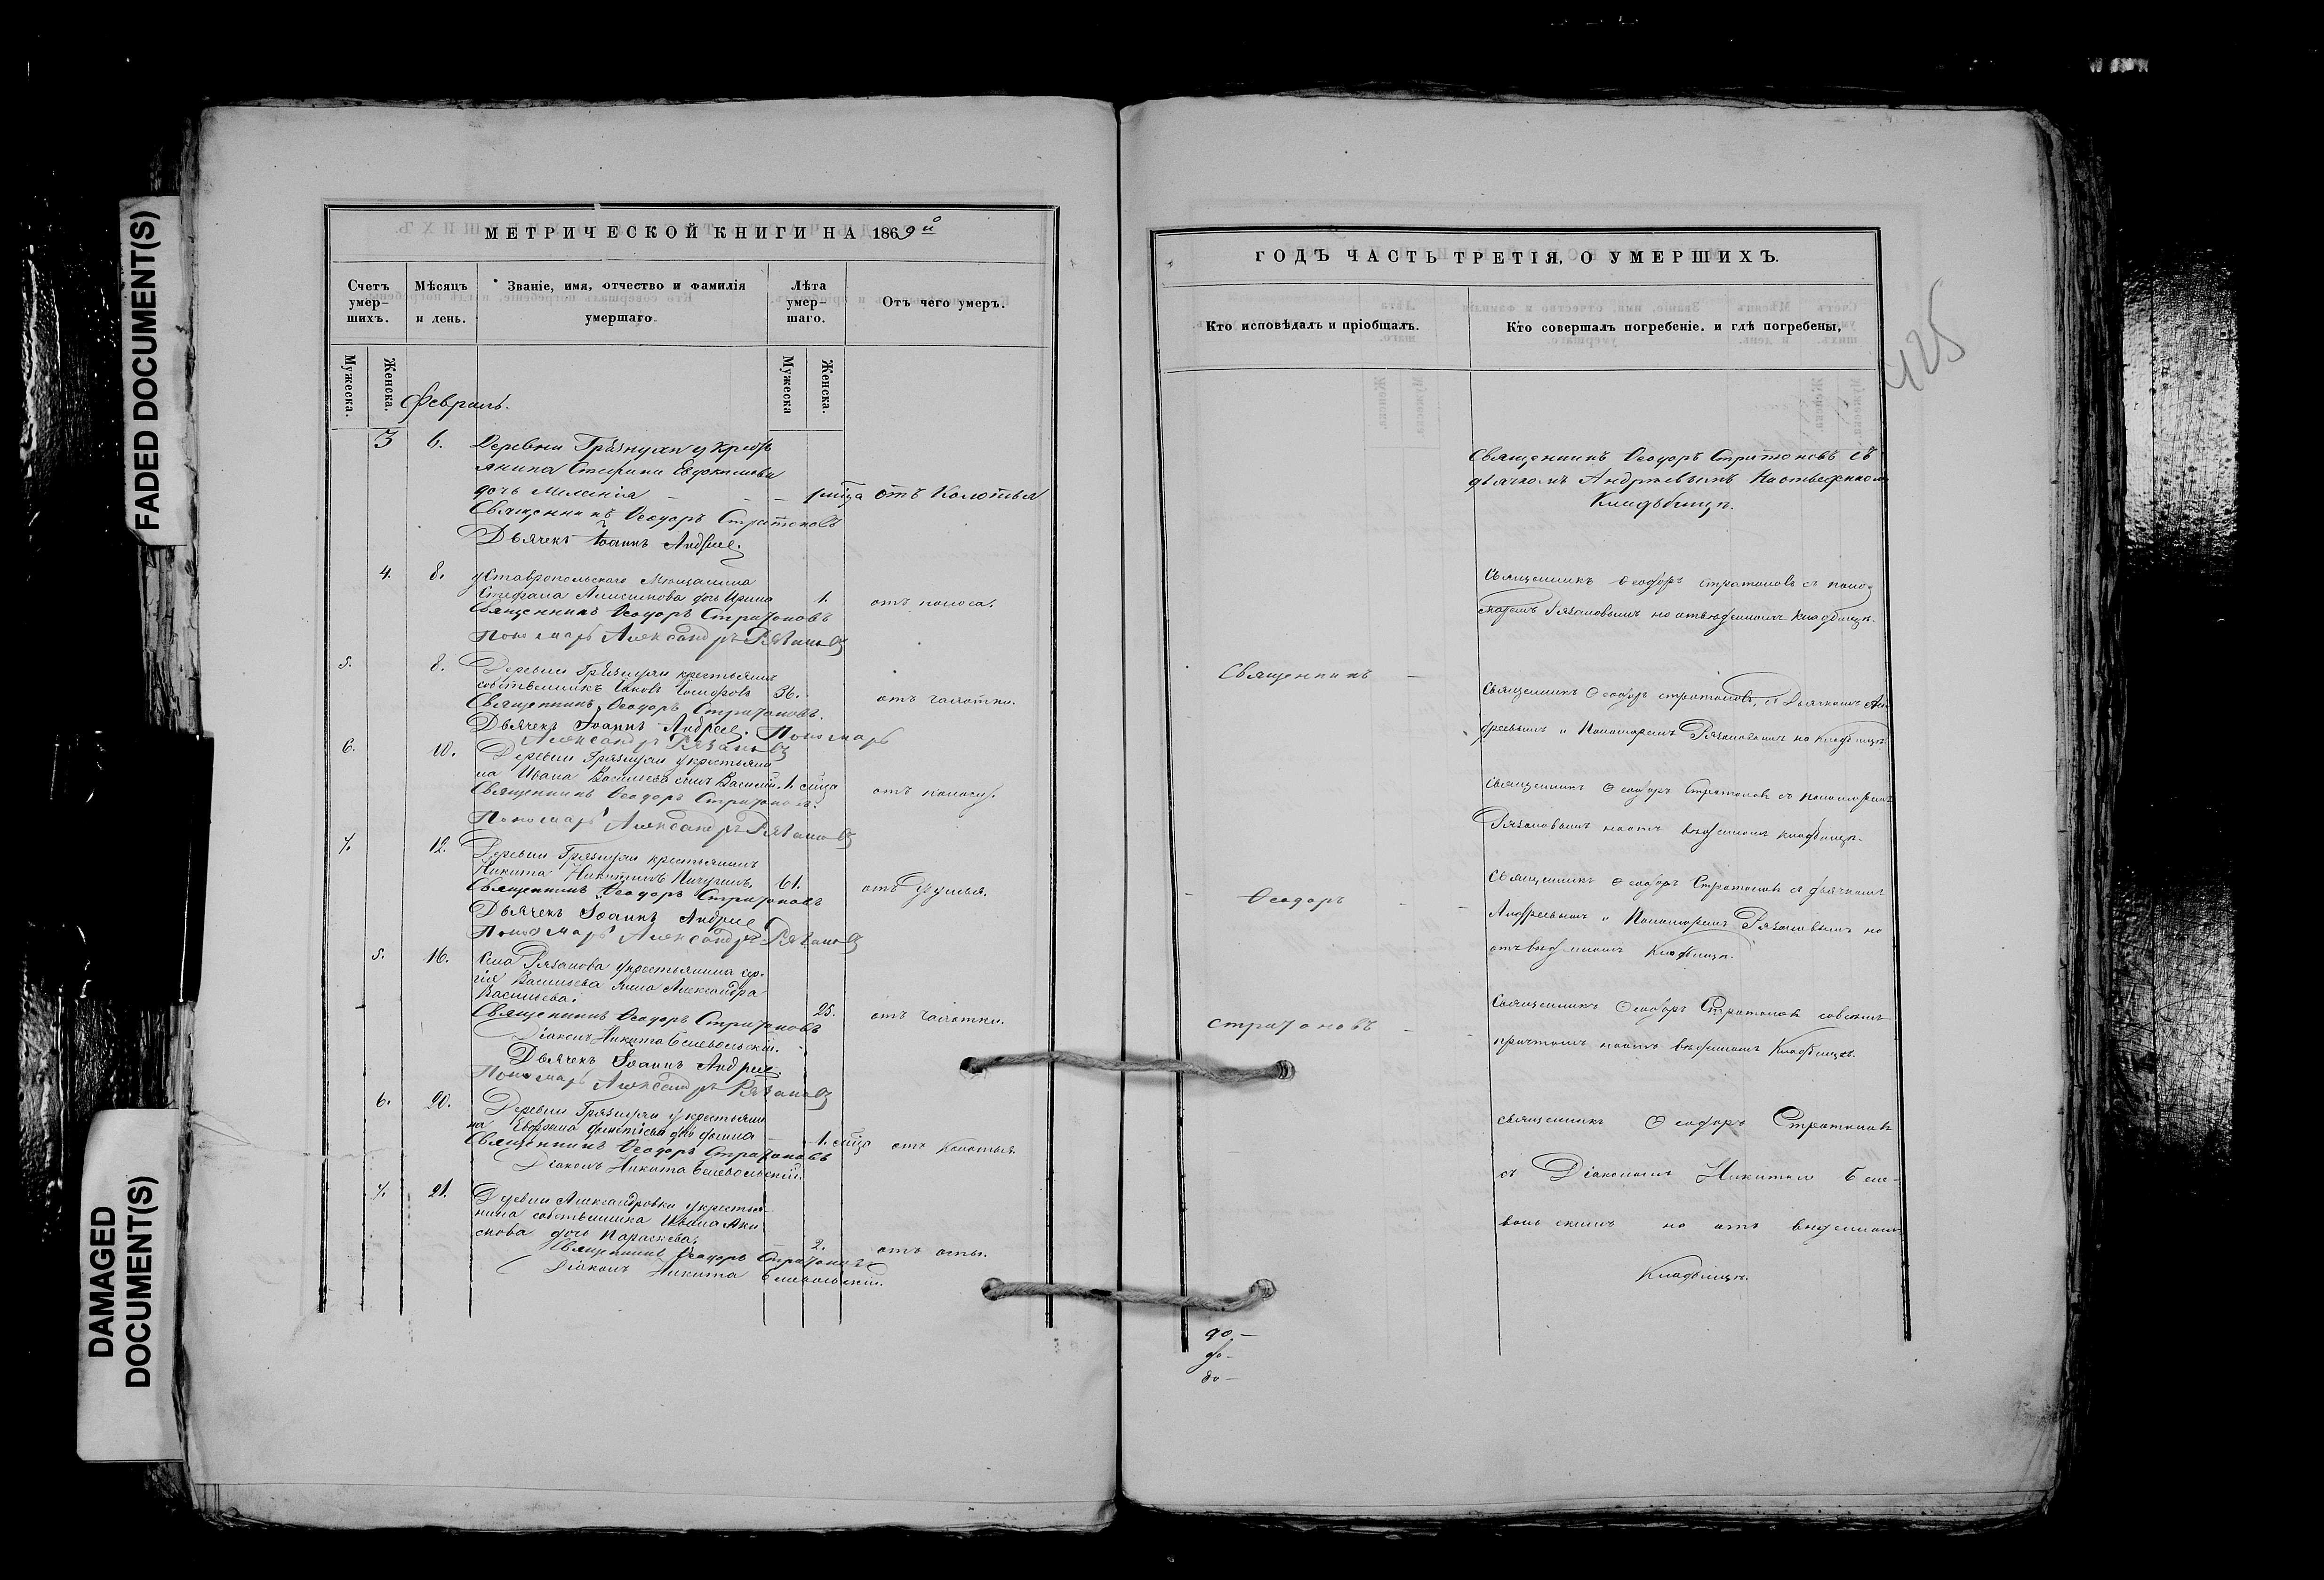 FADED DOCUMENT(S)
DAMAGED
DOCUMENT(S)
МЕТРИЧЕСКОЙ КНИГИ НА 1869й
Счетъ умер-шихъ.
Мѣсяцъ и день.
Званіе, имя, отчество и фамилія умершаго.
Лѣта умер-шаго.
Отъ чего умеръ.
Мужеска.
Женска.
Мужеска
Женска.
Февраль.
3 6. Деревни Грязнухи у кресть
янина Стефана Евдокимова
дочь Меланія — — — 1 мца отъ Колотья
Священникъ Ѳеодоръ Стратоновъ
Дьячекъ Іоаннъ Андреев
4. 8. у Ставропольскаго Мещанина
Стефана дочь Ирина 1. отъ поноса.
Священникъ Ѳеодоръ Стратоновъ
Пономарь Александръ Рязановъ
5. 8. Деревни Грязнухи крестьянинъ
собственникъ Іаковъ 36. отъ чахотки.
Священникъ Ѳеодоръ Стратоновъ.
Дьячекъ Іоаннъ Андреев. Пономарь
Александръ Рязановъ
6. 10. Деревни Грязнухи у крестьяни
на Ивана Васильева сынъ Василій. 1 мца отъ поносу.
Священникъ Ѳеодоръ Стратоновъ.
Пономарь Александръ Рязановъ
7. 12. Деревни Грязнухи крестьянинъ
Никита Никитинъ Пичугинъ. 61. отъ удушья.
Священникъ Ѳеодоръ Стратоновъ
Дьячекъ Іоаннъ Андреев
Пономарь Александръ Рязановъ
5. 16. Села Рязанова у крестьянина Сер-
гія Васильева жена Александра
Васильева. 25. отъ чахотки.
Священникъ Ѳеодоръ Стратоновъ
Діаконъ Никита Белевольскій.
Дьячекъ Іоаннъ Андреев.
Пономарь Александръ Рязановъ
6. 20. Деревни Грязнухи у крестьяни
на дочь 1. мца отъ колотья
Священникъ Ѳеодоръ Стратоновъ
Діаконъ Никита Белевольскій.
7. 21. Деревни Александровки у крестья-
нина собственника Ивана Аки
мова дочь Параскева. 2. отъ оспы.
Священникъ Ѳеодоръ Стратоновъ
Діаконъ Никита Белевольскій.
ГОДЪ ЧАСТЬ ТРЕТІЯ, О УМЕРШИХЪ.
Кто исповѣдалъ и пріобщалъ.
Кто совершалъ погребеніе, и гдѣ погребены,
425
Священникъ Ѳеодоръ Стратоновъ съ
дьячкомъ Андреевымъ на отведенномъ
Кладбищѣ.
Священникъ Ѳеодоръ Стратоновъ съ поно-
маремъ Рязановымъ на отведенномъ кладбищѣ.
Священникъ —
Священникъ Ѳеодоръ Стратоновъ, съ Дьячкомъ Ан
дреевымъ и Пономаремъ Рязановымъ на кладбищѣ
Священникъ Ѳеодоръ Стратоновъ съ пономаремъ
Рязановымъ на отведенномъ кладбищѣ.
Ѳеодоръ
Священникъ Ѳеодоръ Стратоновъ съ дьячкомъ
Андреевымъ и Пономаремъ Рязановымъ на
отведенномъ Кладбищѣ.
Стратоновъ
Священникъ Ѳеодоръ Стратоновъ со всѣмъ
причтомъ на отведенномъ Кладбищѣ.
Священникъ Ѳеодоръ Стратоновъ
съ Діакономъ Никитою Беле-
вольскимъ на отведенномъ
Кладбищѣ.
до. —
до —
до —